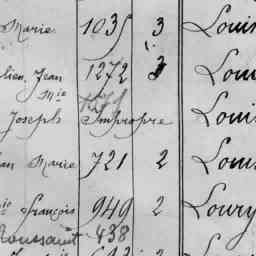 Marie 1035 3 Louis
lien, Jean 1272 3 Loui
Mie
Joseph Impropre Loui
an Marie 721 2 Louis
françois 949 2 Loury
Toussaint 438